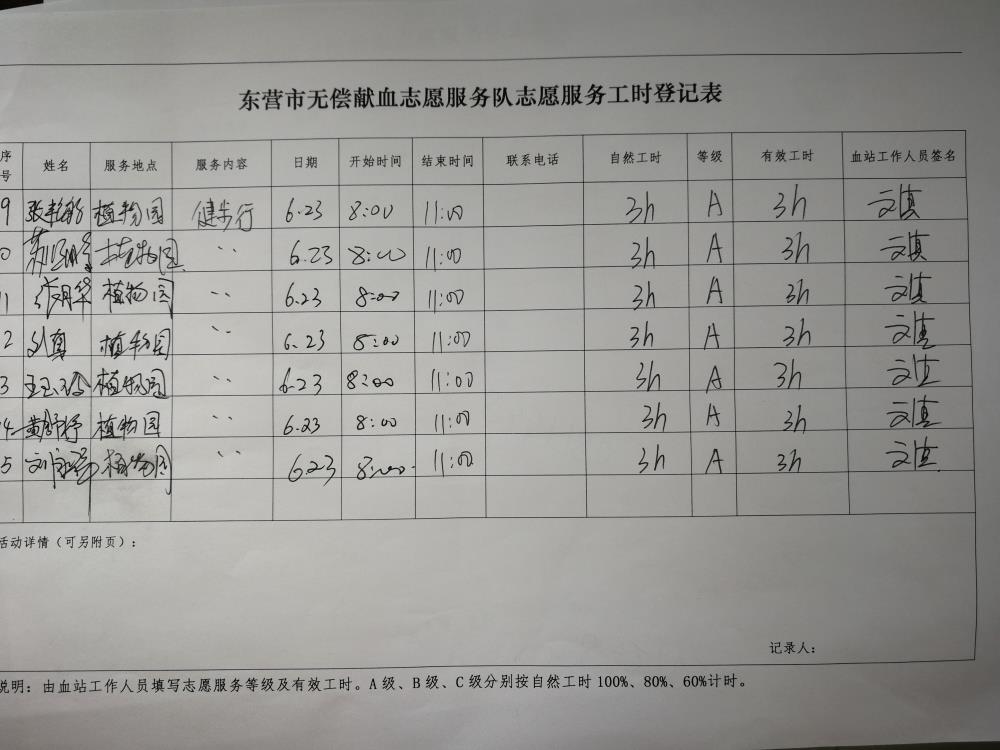 东营市无偿献血志愿服务队志愿服务工时登记表
序号 姓名 服务地点 服务内容 日期 开始时间 结束时间 联系电话 自然工时 等级 有效工时 血站工作人员签名
9 植物园 健步行 6.23 8:00 11:00 3h A 3h
0 植物园 〃 6.23 8:00 11:00 3h A 3h
1 植物园 〃 6.23 8:00 11:00 3h A 3h
2 刘真 植物园 〃 6.23 8:00 11:00 3h A 3h
3 植物园 〃 6.23 8:00 11:00 3h A 3h
4 植物园 〃 6.23 8:00 11:00 3h A 3h
5 植物园 〃 6.23 8:00 11:00 3h A 3h
活动详情（可另附页）：
记录人：
说明：由血站工作人员填写志愿服务等级及有效工时。A级、B级、C级分别按自然工时100%、80%、60%计时。